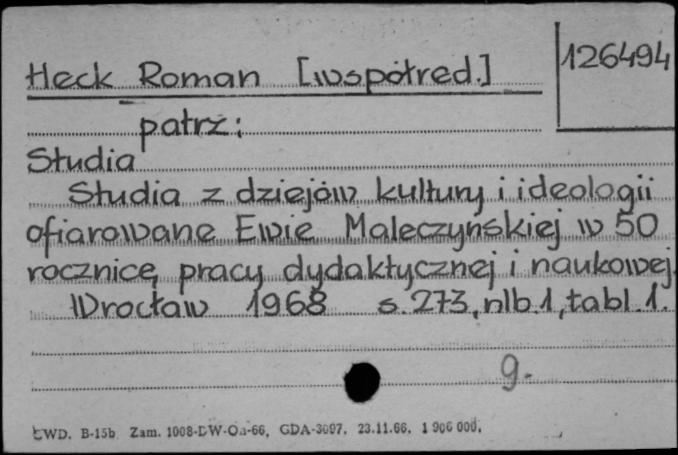 Heck Roman [współred.]
126494
patrz:
Studia
Studia z dziejów kultury i ideologii
ofiarowane Ewie Maleczyńskiej w 50
rocznicę pracy dydaktycznej i naukowej.
Wrocław 1968 s. 273, nlb. 1, tabl. 1.
g.
CWD. B-15b Zam. 1008-DW-Oa-66, GDA-3097. 23.11.66. 1 906 000.